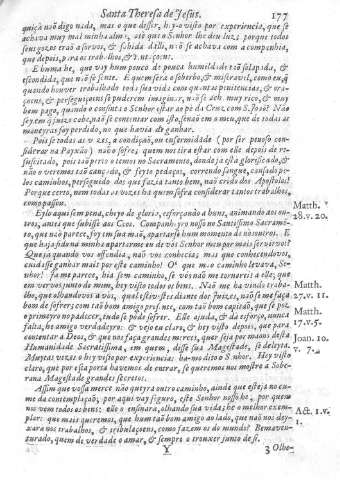 Santa Theresa de Jesus. 177
quiçà não digo nada, mas o que disser, hey-o visto por experiencia, que se
achava muy mal minha alma, atè que o Senhor lhe deu luz: porque todos
seus gozos trao a sorvos, & sahida dalli, não se achava com a companhia,
que depois, para os trabalhos, & tentaçoens.
E huma he, que vay hum pouco de pouca humildade taõ solapada, &
escondida, que não se sente. E quem sera o soberbo, & miseravel, como eu, q̃
quando houver trabalhado toda sua vida com quantas penitencias, & o-
raçoens, & perseguiçoens se puderem imaginar, não se ache muy rico, & muy
bem pago, quando o consinta o Senhor estar ao pè da Cruz, com S. Joaõ? Não
sey em q̃ juizo cabe, não se contentar com isto, senão em o meu, que de todas as
maneyras foy perdido, no que havia de ganhar.
Pois se todas as vezes, a condição, ou enfermidade (por ser penoso con-
siderar na Payxão) não o sofre; quem nos tira estar com elle depois de re-
suscitado, pois taõ perto o temos no Sacramento, donde ja está glorificado, &
não o veremos taõ cançado, & feyto pedaços, correndo sangue, cansado pe-
los caminhos, perseguido dos que fazia tanto bem, não crido dos Apostolos?
Porque certo, nem todas as vezes ha quem sofra considerar tantos trabalhos,
como passou.
Eylo aqui sem pena, cheyo de gloria, esforçando a huns, animando aos ou-
tros, antes que subisse aos Ceos. Companheyro nosso no Santissimo Sacramē-
to, que naõ parece, foy em sua mão, apartarse hum momento de nòs outros. E
que haja sido na minha apartarme eu de vòs Senhor meu por mais servirvos?
Matth. 28. v. 20.
Que ja quando vos offendia, não vos conhecia; mas que conhecendovos,
cuidasse ganhar mais por este caminho! O que mao caminho levava, Se-
nhor! Ja me parece, hia sem caminho, se vòs não me tornareis a elle; que
em vervos junto de mim, hey visto todos os bens. Não me ha vindo traba-
lho, que olhandovos a vòs, qual estivestes diante dos Juizes, não se me faça
Matth. 27. v. 11.
bom de sofrer; com taõ bom amigo presente, com taõ bom capitão, que se poz
o primeyro no padecer, tudo se pode sofrer. Elle ajuda, & da esforço, nunca
Matth. 17. v. 5.
falta, he amigo verdadeyro: & vejo eu claro, & hey visto depois, que para
contentar a Deos, & que nos faça grandes merces, quer seja por mãos desta
Joan. 10. v. 7.
Humanidade Sacratissima, em quem, disse sua Magestade, se deleyta.
Muytas vezes o hey visto por experiencia: ha-mo dito o Senhor. Hey visto
claro, que por esta porta havemos de entrar, se queremos nos mostre a Sobe-
rana Magestade grandes secretos.
Assim que vossa merce não queyra outro caminho, ainda que esteja no cu-
me da contemplação, por aqui vay seguro, este Senhor nosso he, por quem
nos vem todos os bens: elle o ensinara, olhando sua vida; he o melhor exem-
plar: que mais queremos, que hum taõ bom amigo ao lado, que não nos dey-
Act. 1. v. 1.
xara nos trabalhos, & tribulaçoens, como fazem os do mundo? Bemaven-
turado, quem de verdade o amar, & sempre o trouxer junto de si.
Y 3 Olhe-